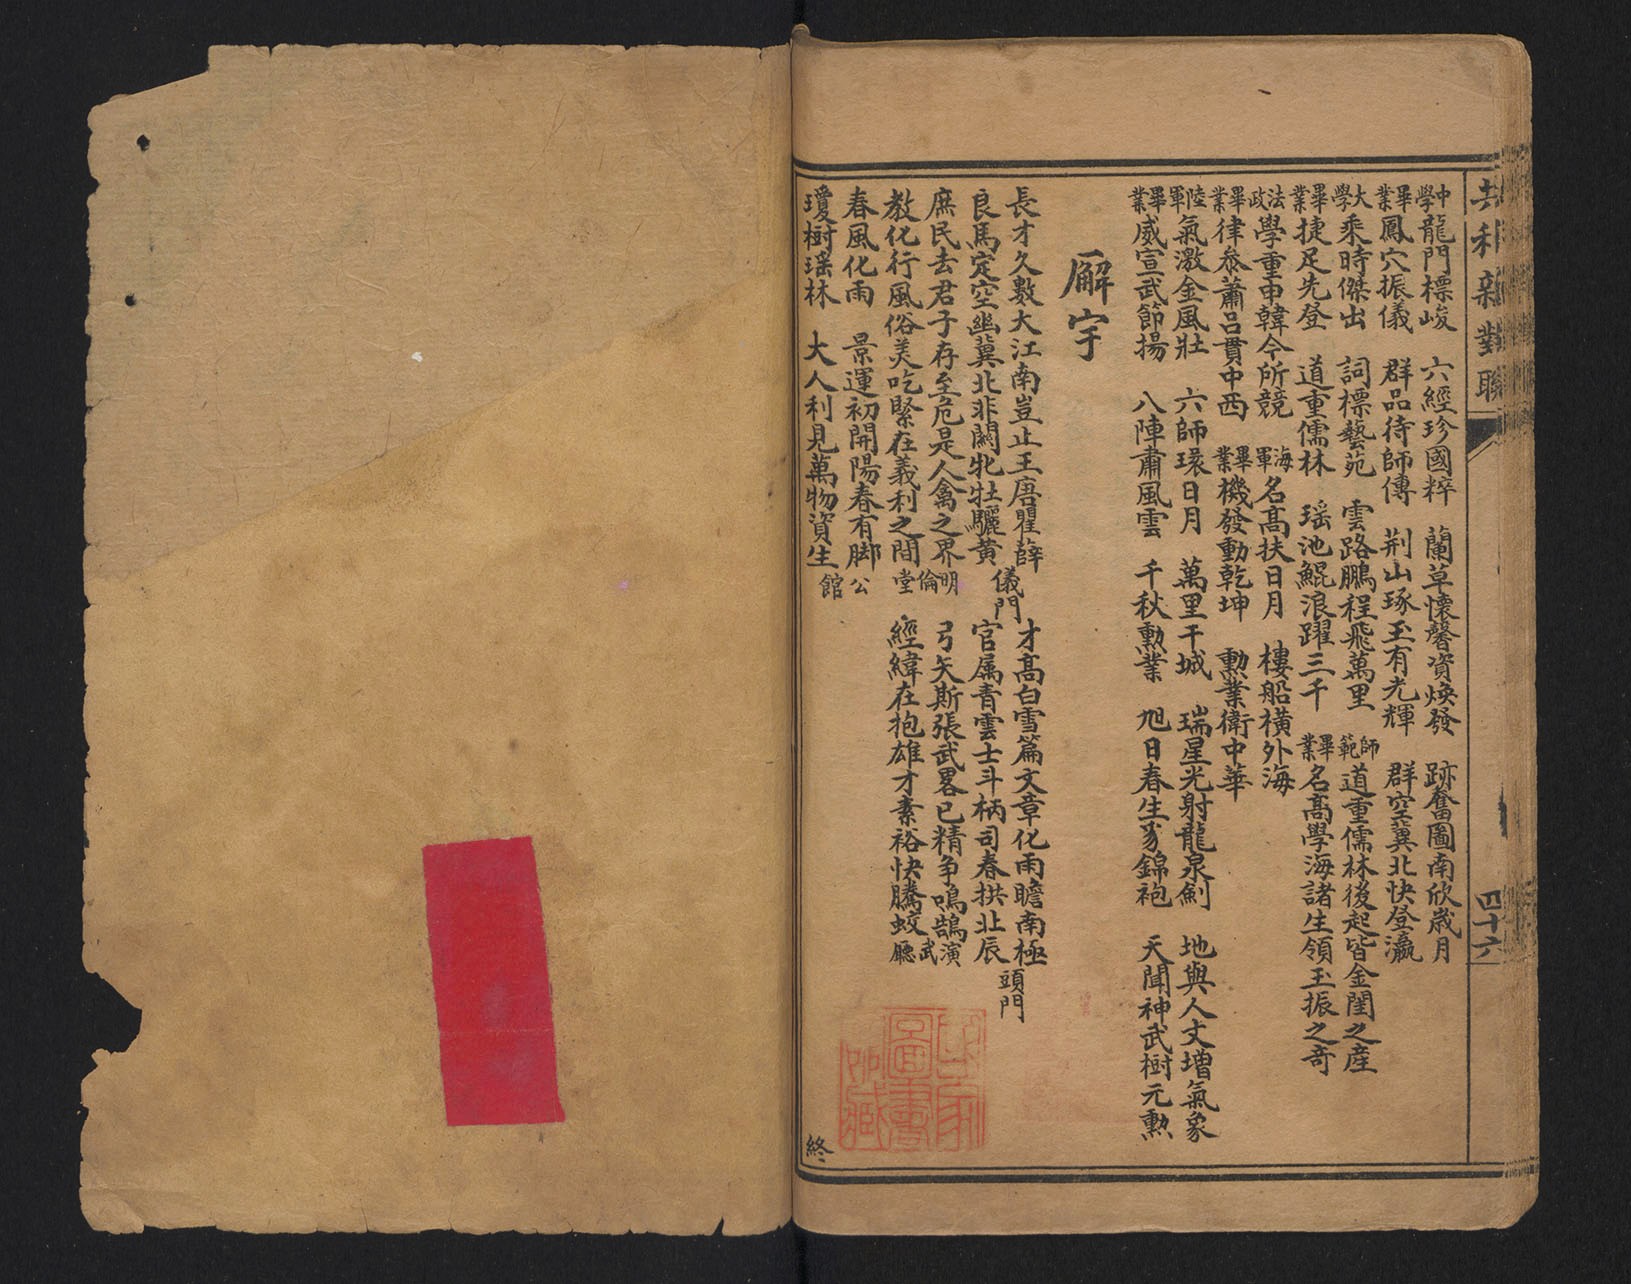 共和新對聯
四十六
中學 龍門標峻 六經珍國粹 蘭草懷馨資煥發 跡奮圖南欣歲月
畢業 鳳穴振儀 群品待師傳 荆山琢玉有光輝 群空冀北快登瀛
大學 乘時傑出 詞標藝苑 雲路鵬程飛萬里 師範 道重儒林後起皆金閨之産
畢業 捷足先登 道重儒林 瑶池鯤浪躍三千 畢業 名高學海諸生領玉振之奇
法政 學重申韓今所競 海軍 名高扶日月 樓船橫外海
畢業 律叅蕭呂貫中西 畢業 機發動乾坤 勲業衛中華
陸軍 氣激金風壯 六師環日月 萬里干城 瑞星光射龍泉劍 地與人文增氣象
畢業 威宣武節揚 八陣肅風雲 千秋勲業 旭日春生豸錦袍 天聞神武樹元勲
廨宇
長才久數大江南豈止王唐瞿薛 儀門 才高白雪篇文章化雨瞻南極 頭門
良馬定空幽冀北非關牝牡驪黄 官属青雲士斗柄司春拱北辰
庶民去君子存至危是人禽之界 明倫堂 弓矢斯張武畧已精争鳴鵠 演武廳
教化行風俗美吃緊在義利之間 經緯在抱雄才素裕快騰蛟
春風化雨 景運初開陽春有脚 公館
瓊樹瑶林 大人利見萬物資生
終